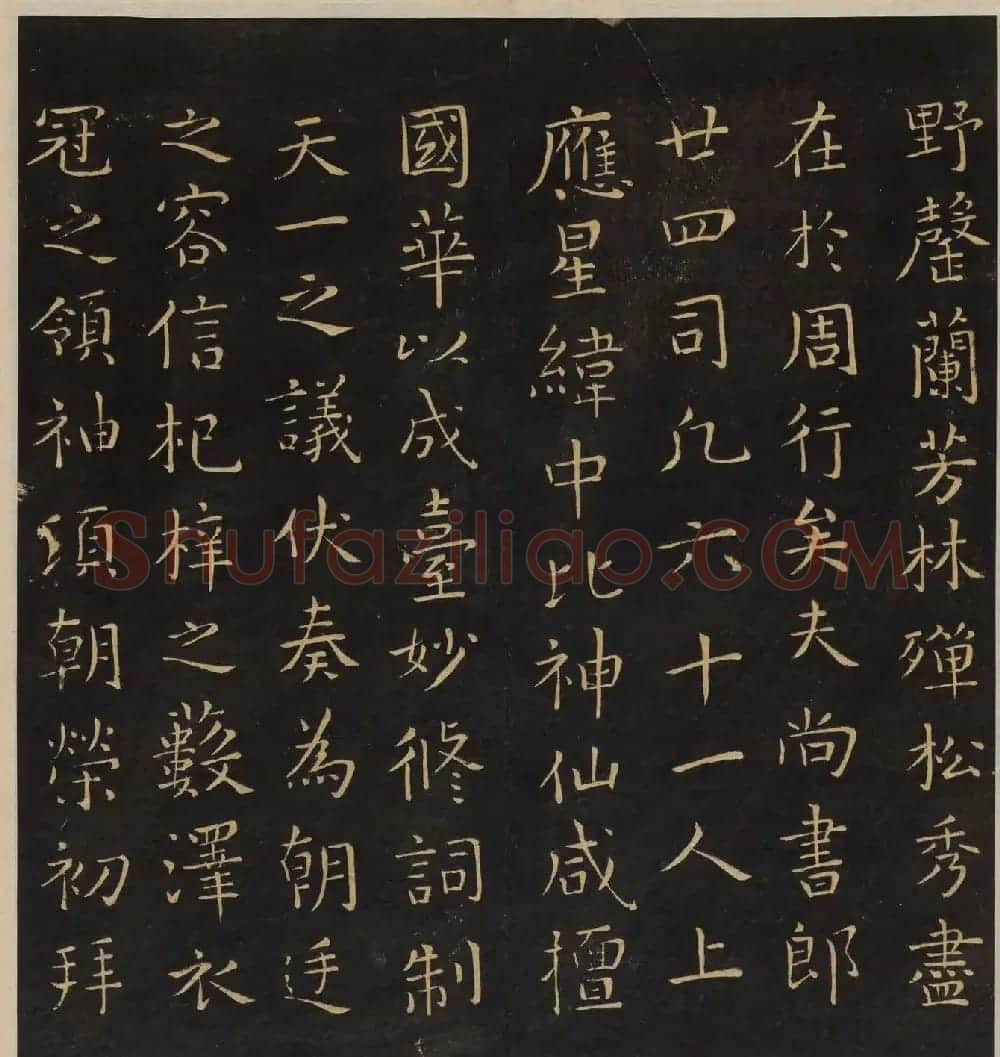 野罄蘭芳林殫松秀盡
在於周行矣夫尚書郎
廿四司凡六十一人上
應星緯中比神仙咸擅
國華以成臺妙修詞制
天一之議伏奏為朝廷
之容信杞梓之藪澤衣
冠之領袖須朝榮初拜
Shufaziliao.COM